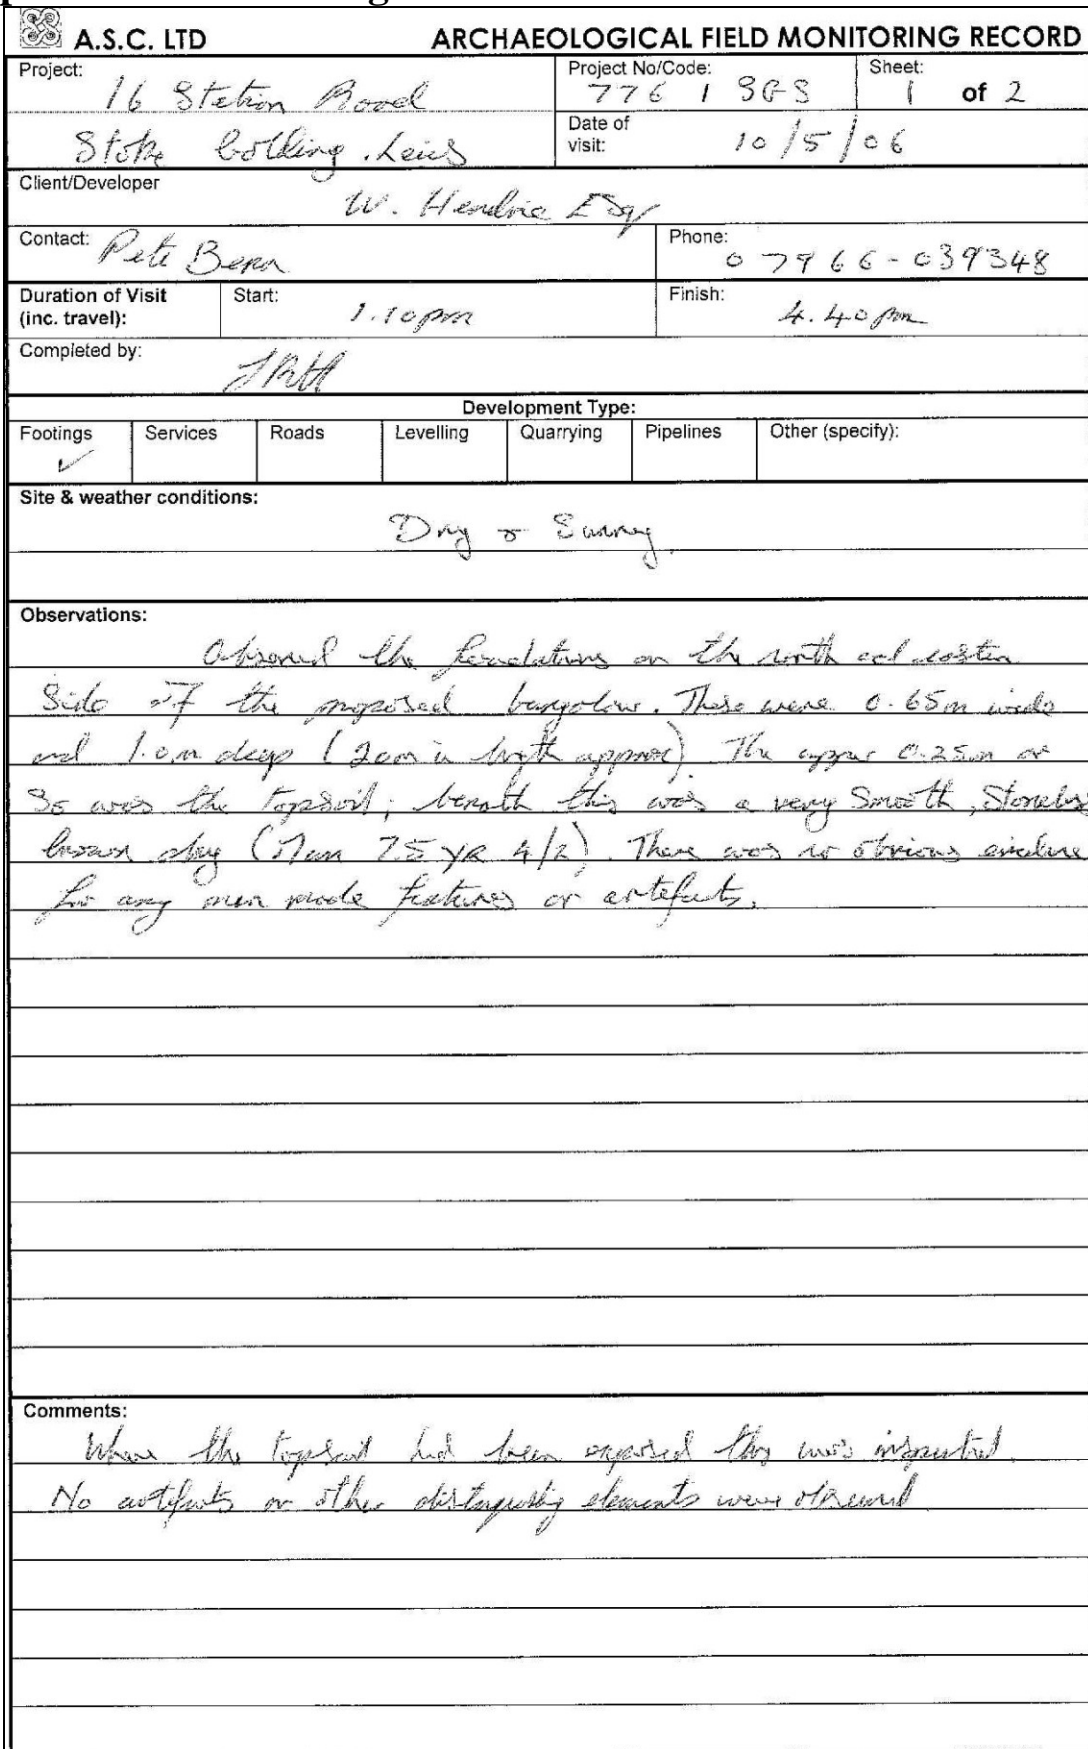 A.S.C. LTD ARCHAEOLOGICAL FIELD MONITORING RECORD
Project: 16 Station Road
Stoke Golding, Leics
Project No/Code: 776 / SGS
Sheet: 1 of 2
Date of visit: 10/5/06
Client/Developer W. Hendrie Esq
Contact: Pete
Phone: 07966-039348
Duration of Visit (inc. travel): Start: 1.10pm Finish: 4.40pm
Completed by:
Development Type:
Footings ✓ Services Roads Levelling Quarrying Pipelines Other (specify):
Site & weather conditions:
Dry & Sunny.
Observations:
Observed the foundations on the north and eastern
side of the proposed bungalow. These were 0.65m wide
and 1.0m deep (20m in length approx). The upper 0.25m or
so was the topsoil; beneath this was a very smooth, stoneless
brown clay (Mun 7.5 YR 4/2). There was no obvious evidence
for any man made features or artefacts.
Comments:
Where the topsoil had been exposed this was inspected.
No artefacts or other distinguishing elements were observed